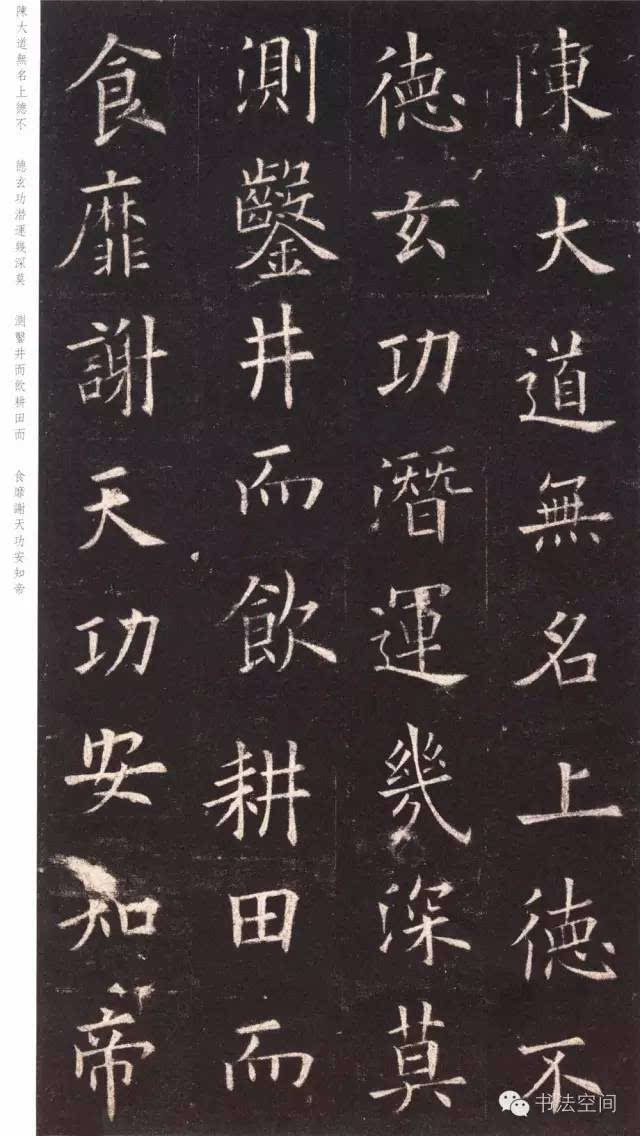 陳大道無名上德不
德玄功潛運幾深莫
測鑿井而飲耕田而
食靡謝天功安知帝
陳大道無名上德不 德玄功潜運幾深莫 測鑿井而飲耕田而 食靡謝天功安知帝
书法空间